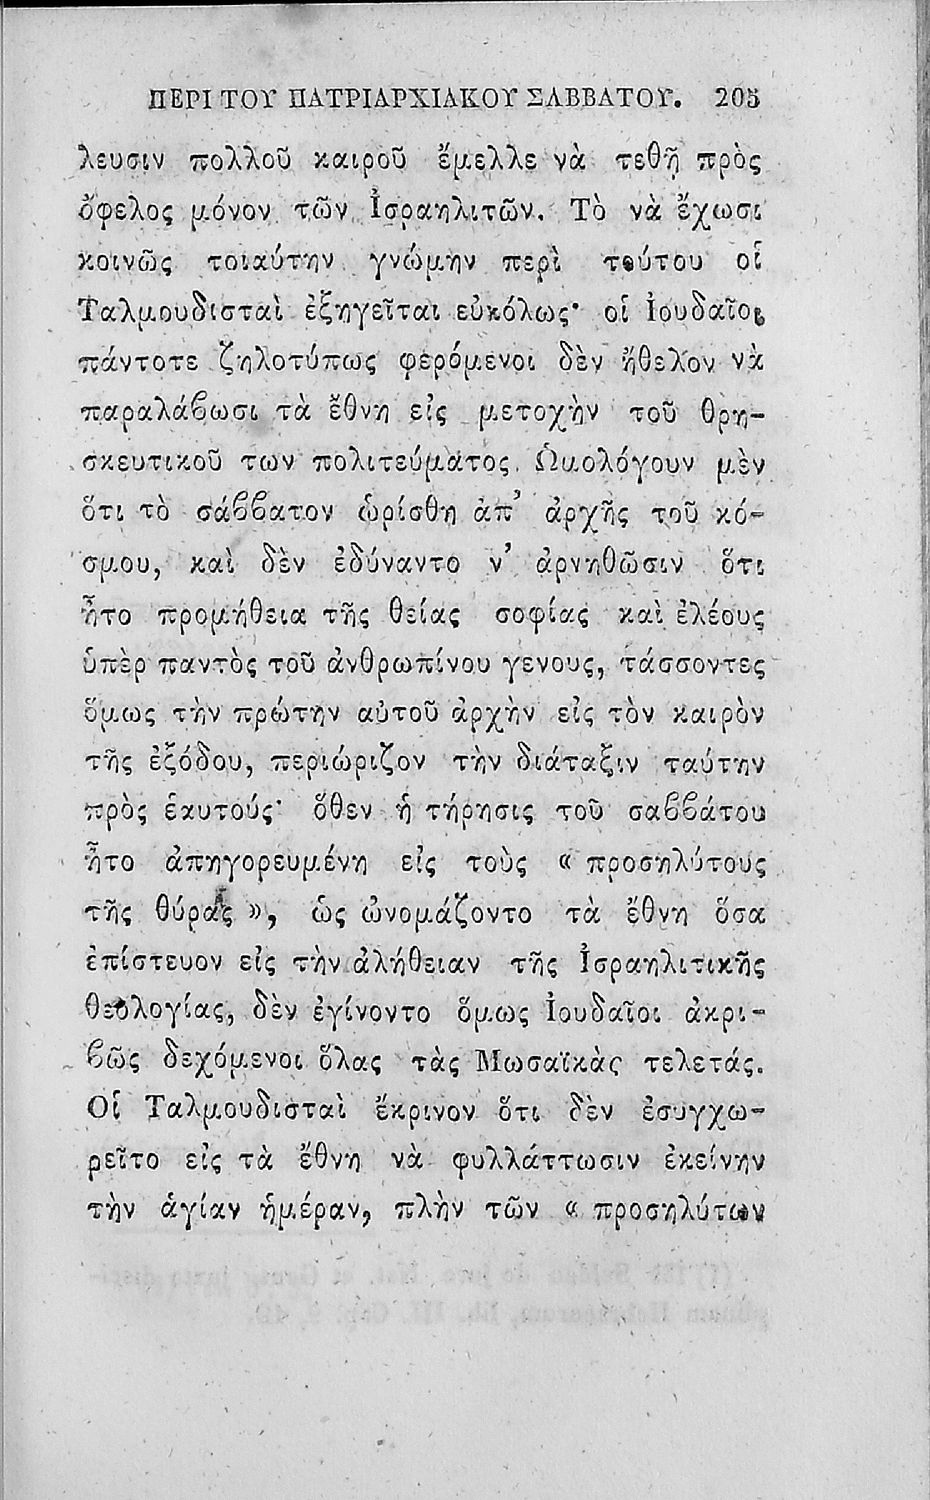 ΠΕΡΙ ΤΟΥ ΠΑΤΡΙΑΡΧΙΑΚΟΥ ΣΑΒΒΑΤΟΥ. 205
λευσιν πολλοῦ καιροῦ ἔμελλε νὰ τεθῇ πρὸς
ὄφελος μόνον τῶν Ἰσραηλιτῶν. Τὸ νὰ ἔχωσι
κοινῶς τοιαύτην γνώμην περὶ τούτου οἱ
Ταλμουδισταὶ ἐξηγεῖται εὐκόλως· οἱ Ἰουδαῖοι
πάντοτε ζηλοτύπως φερόμενοι δὲν ἤθελον νὰ
παραλάβωσι τὰ ἔθνη εἰς μετοχὴν τοῦ θρη-
σκευτικοῦ των πολιτεύματος. Ὡμολόγουν μὲν
ὅτι τὸ σάββατον ὡρίσθη ἀπ' ἀρχῆς τοῦ κό-
σμου, καὶ δὲν ἐδύναντο ν' ἀρνηθῶσιν ὅτι
ἦτο προμήθεια τῆς θείας σοφίας καὶ ἐλέους
ὑπὲρ παντὸς τοῦ ἀνθρωπίνου γενους, τάσσοντες
ὅμως τὴν πρώτην αὐτοῦ ἀρχὴν εἰς τὸν καιρὸν
τῆς ἐξόδου, περιώριζον τὴν διάταξιν ταύτην
πρὸς ἑαυτούς· ὅθεν ἡ τήρησις τοῦ σαββάτου
ἦτο ἀπηγορευμένη εἰς τοὺς « προσηλύτους
τῆς θύρας », ὡς ὠνομάζοντο τὰ ἔθνη ὅσα
ἐπίστευον εἰς τὴν ἀλήθειαν τῆς Ἰσραηλιτικῆς
θεολογίας, δὲν ἐγίνοντο ὅμως Ἰουδαῖοι ἀκρι-
βῶς δεχόμενοι ὅλας τὰς Μωσαϊκὰς τελετάς.
Οἱ Ταλμουδισταὶ ἔκρινον ὅτι δὲν ἐσυγχω-
ρεῖτο εἰς τὰ ἔθνη νὰ φυλλάττωσιν ἐκείνην
τὴν ἁγίαν ἡμέραν, πλὴν τῶν « προσηλύτων